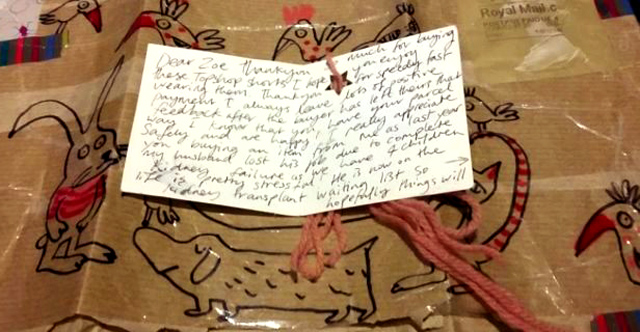 Royal Mail
Dear Zoe Thankyou so much for buying
these Topshop shorts I hope you enjoy
wearing them. Thankyou for speedy fast
payment I always leave lots of positive
feedback after the buyer has left theirs that
way I know that you have your parcel
safely and are happy. I really appreciate
you buying an item from me as last year
my husband lost his job due to complete
kidney failure as we have 4 children
life is pretty stressful. He is now on the
kidney transplant waiting list so
hopefully things will